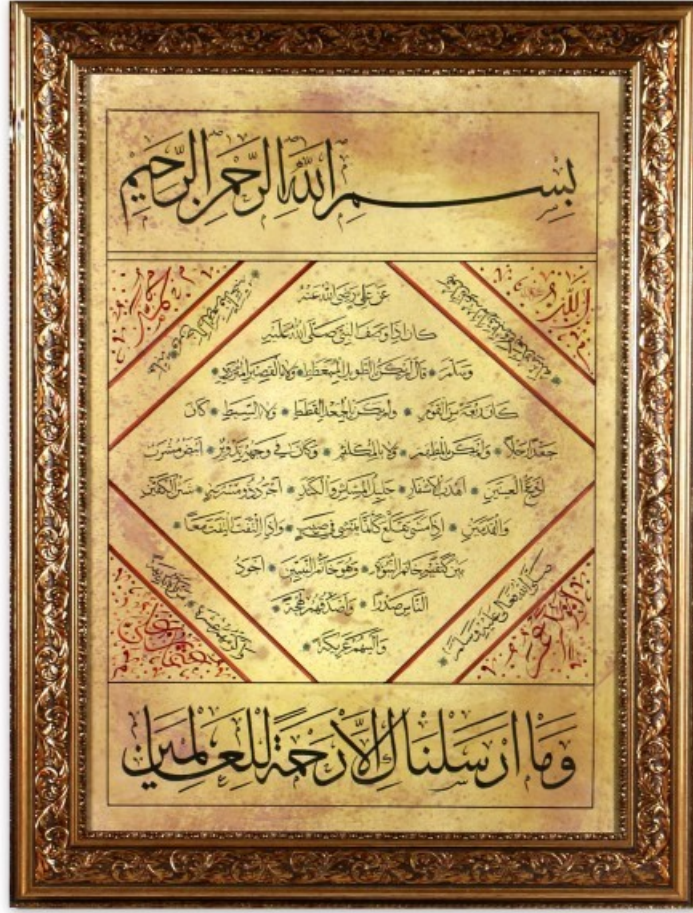 بِسْمِ اللهِ الرَّحْمنِ الرَّحِيمِ
الله
محمد
عن علي رضي الله عنه
كان اذا وصف النبي صلى الله عليه
وسلم * قال لم يكن بالطويل الممغط * ولا بالقصير المتردد *
كان ربعة من القوم * ولم يكن بالجعد القطط * ولا بالسبط * كان
جعدا رجلا * ولم يكن بالمطهم * ولا بالمكلثم * وكان في وجهه تدوير * ابيض مشرب
ادعج العينين * اهدب الاشفار * جليل المشاش والكتد * اجرد ذو مسربة * شثن الكفين
والقدمين * اذا مشى تقلع كأنما يمشي في صبب * واذا التفت التفت معا *
بين كتفيه خاتم النبوة * وهو خاتم النبيين * اجود
الناس صدرا * واصدقهم لهجة *
والينهم عريكة *
صلى الله تعالى عليه وسلم *
وَمَا اَرْسَلْنَاكَ اِلَّا رَحْمَةً لِلْعَالَمِينَ